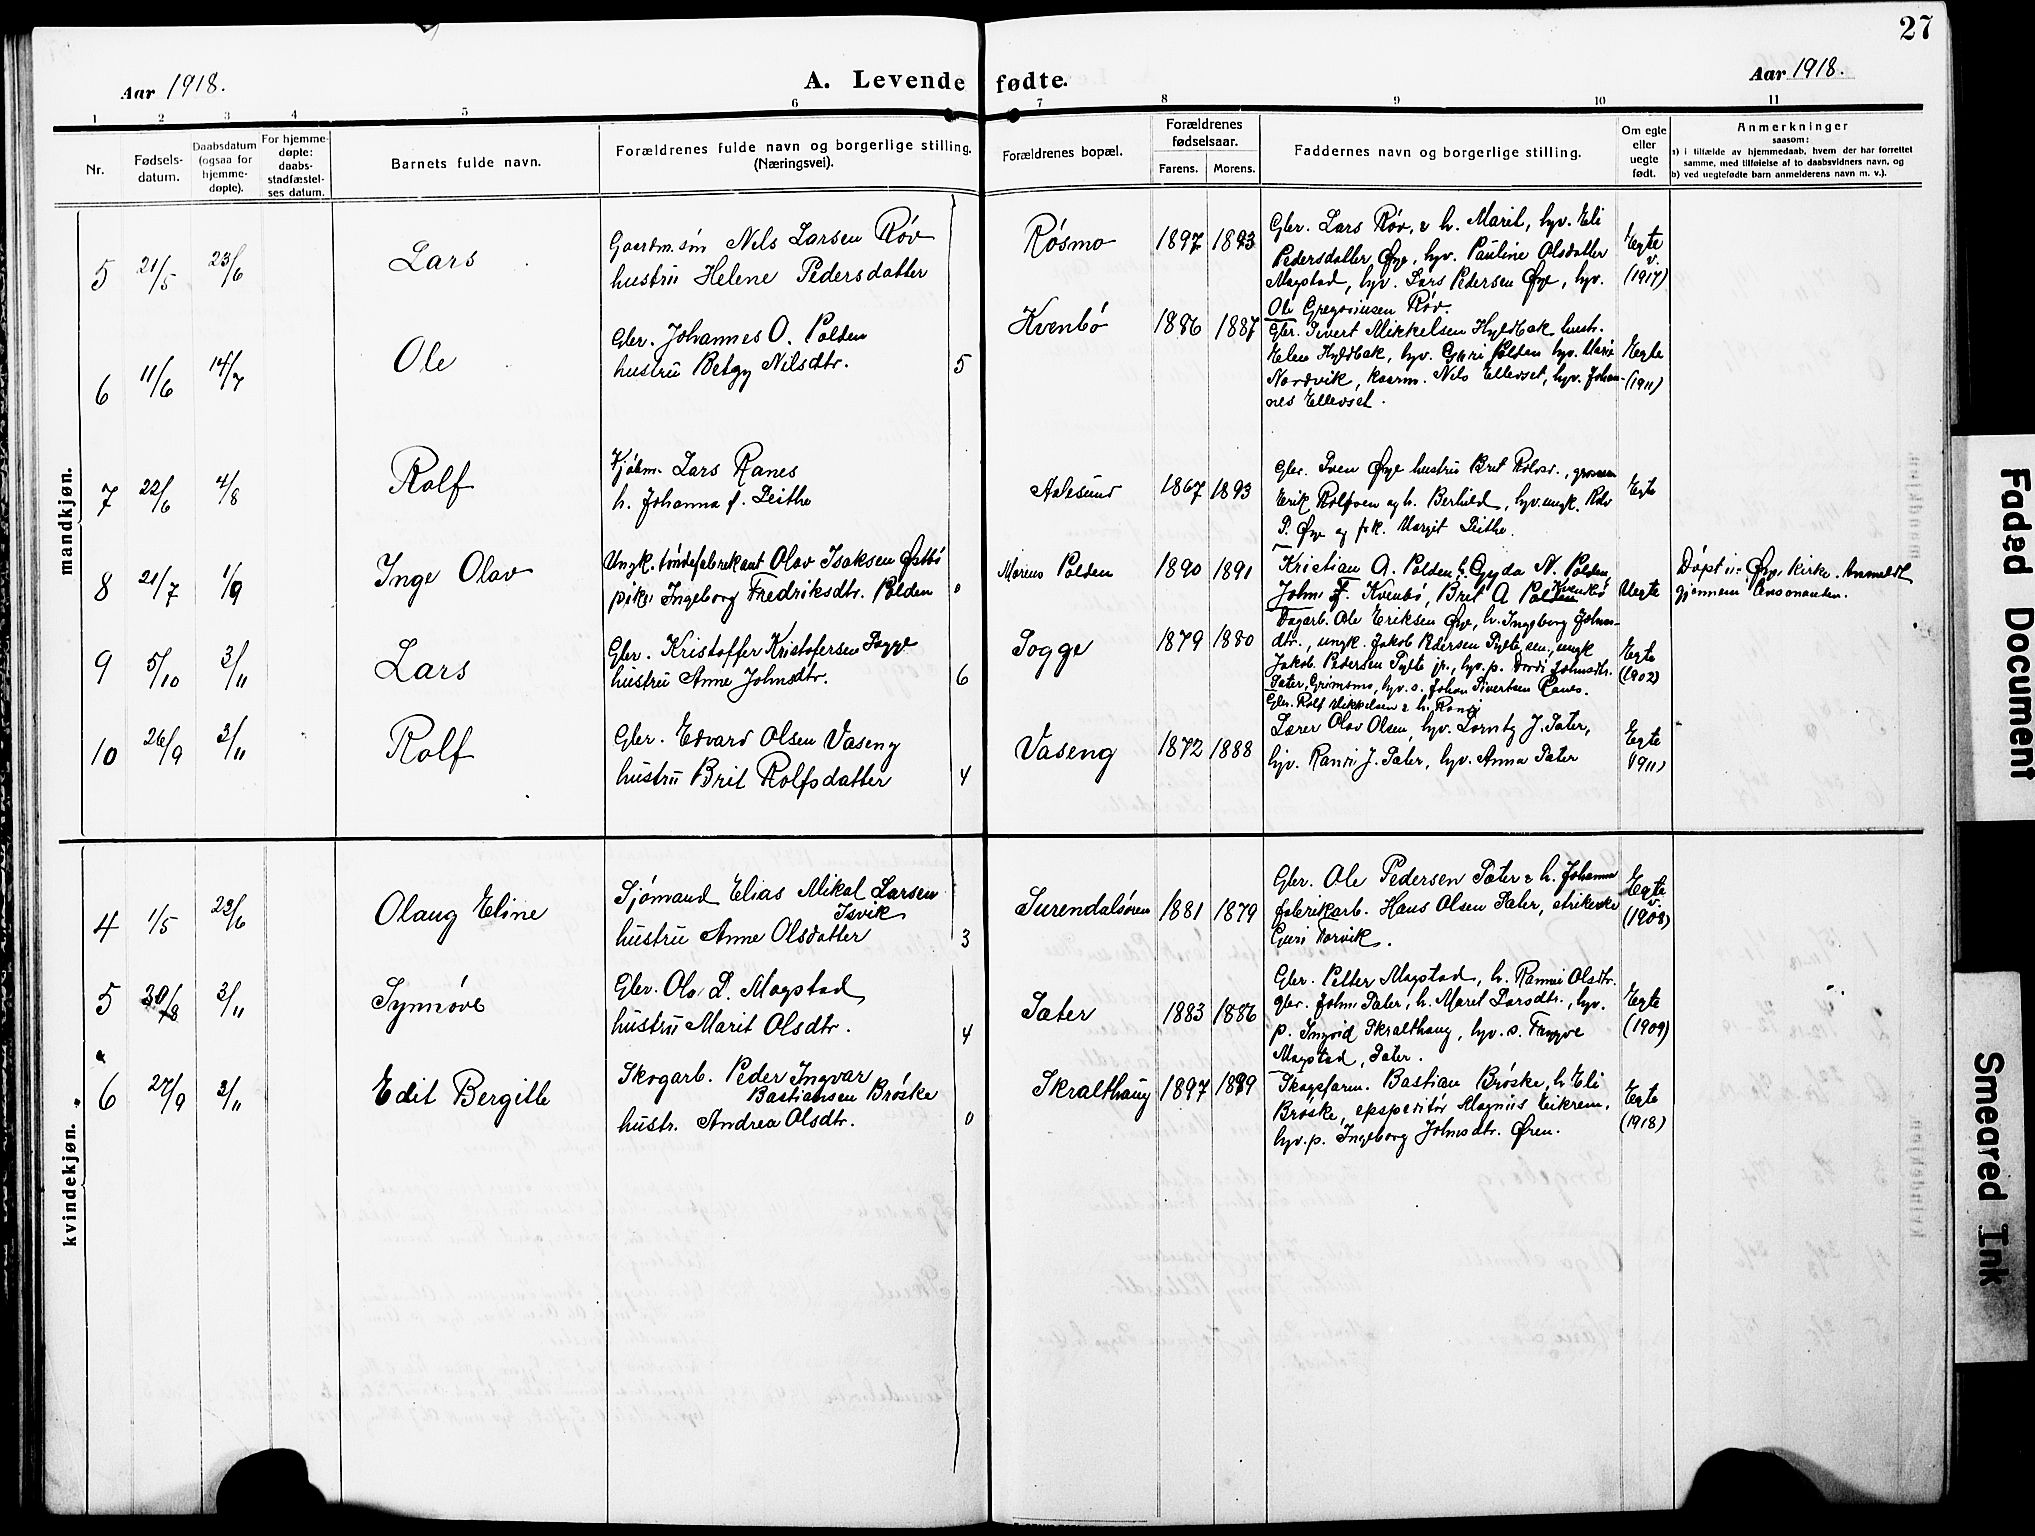 27
Aar 1918.
A. Levende fødte.
Aar 1918.
1 2 3 4 5 6 7 8 9 10 11
Nr.
Fødsels-
datum.
Daabsdatum
(ogsaa for
hjemme-
døpte).
For hjemme-
døpte:
daabs-
stadfæstel-
ses datum.
Barnets fulde navn.
Forældrenes fulde navn og borgerlige stilling.
(Næringsvei).
Forældrenes bopæl.
Forældrenes
fødselsaar.
Farens. Morens.
Faddernes navn og borgerlige stilling.
Om egte
eller
uegte
født.
Anmerkninger
saasom:
a) i tilfælde av hjemmedaab, hvem der har forrettet
samme, med tilføielse af to daabsvidners navn, og
b) ved uegtefødte barn anmelderens navn m. v.).
mandkjøn.
5 21/5 23/6 Lars
Gaardm. søn Nils Larsen Røv
hustru Helene Pedersdatter
Røsmo 1897 1893
Gbr. Lars Røv, & h. Marit, hyv. Eli
Pedersdatter Øye, hyv. Pauline Olsdatter
Magstad, hyv. Lars Pedersen Øye, hyv.
Ole Gregoriusen Røv.
Egte
v.
(1917)
6 11/6 14/7 Ole
Gbr. Johannes O. Polden
hustru Betzy Nilsdtr. 5
Kvenbø 1886 1887
Gbr. Sivert Mikkelsen Hyldbak hustr.
Elen Hyldbak, hyv. Guri Polden hyv. Marie
Nordvik, kaarm. Nils Ellevset, hyv. Johan-
nes Ellevset.
Egte
(1911)
7 22/6 4/8 Rolf
Kjøbm. Lars Ranes
h. Johanna f. Leithe
Aalesund 1867 1893
Gbr. Sven Øye hustru Brit Rolvsd.,
Erik Rolfsen og h. Berhild, hyv. ungk. Rolv
P. Øye og frk. Margit Leithe.
Egte
8 21/7 1/9 Inge Olav
Ungk. tøndefabrikant Olav Isaksen Østbø
pike Ingeborg Fredriksdtr. Polden 0
Morens Polden 1890 1891
Kristian A. Polden h. Gyda N. Polden,
John F. Kvenbø, Brit A Polden Kvenbø
Uegte
Døpt i Øye kirke. Anmeldt
gjennem Personanten.
9 5/10 3/11 Lars
Gbr. Kristoffer Kristofersen Sogge
hustru Anne Johnsdtr. 6
Sogge 1879 1880
Dagarb. Ole Eriksen Øye, h. Ingeborg Johns-
dtr., ungk. Jakob Pedersen Sylte sen, ungk
Jakob Pedersen Sylte jr., hyv. p. Dordi Johnsdtr.
Sæter, Grimsmo, hyv. s. Johan Sivertsen Ranes.
Egte
(1902)
10 26/9 3/11 Rolf
Gbr. Edvard Olsen Vaseng
hustru Brit Rolfsdatter 4
Vaseng 1872 1888
Gbr. Rolf Mikkelsen & h. Randi
Lærer Olav Olsen, hyv. Lorntz J. Sæter,
hyv. Randi J. Sæter, hyv. Anna Sæter
Egte
(1911)
kvindekjøn.
4 1/5 23/6 Olaug Eline
Sjømand Elias Mikal Larsen
Isvik
hustru Anne Olsdatter 3
Surendalsøren 1881 1879
Gbr. Ole Pedersen Sæter & h. Johanna
fabrikarb. Hans Olsen Sæter, strikerske
Guri Norvik.
Egte
v.
(1908)
5 30/8 3/11 Synnøve
Gbr. Ole L. Magstad
hustru Marit Olsdtr. 4
Sæter 1883 1886
Gbr. Petter Magstad, h. Rannei Olsdtr.
gbr. John Sæter, h. Maret Larsdtr., hyv.
p. Ingrid Skralthaug, hyv. s. Trygve
Magstad, Sæter.
Egte
(1909)
6 27/9 3/11 Edit Bergitte
Skogarb. Peder Ingvar
Bastiansen Brøske
hustr. Andrea Olsdtr. 0
Skralthaug 1897 1889
Skogsform. Bastian Brøske, h. Eli
Brøske, ekspeditør Magnus Eikrem,
hyv. p. Ingeborg Johnsdtr. Øren.
Egte
(1918)
Faded Document
Smeared Ink